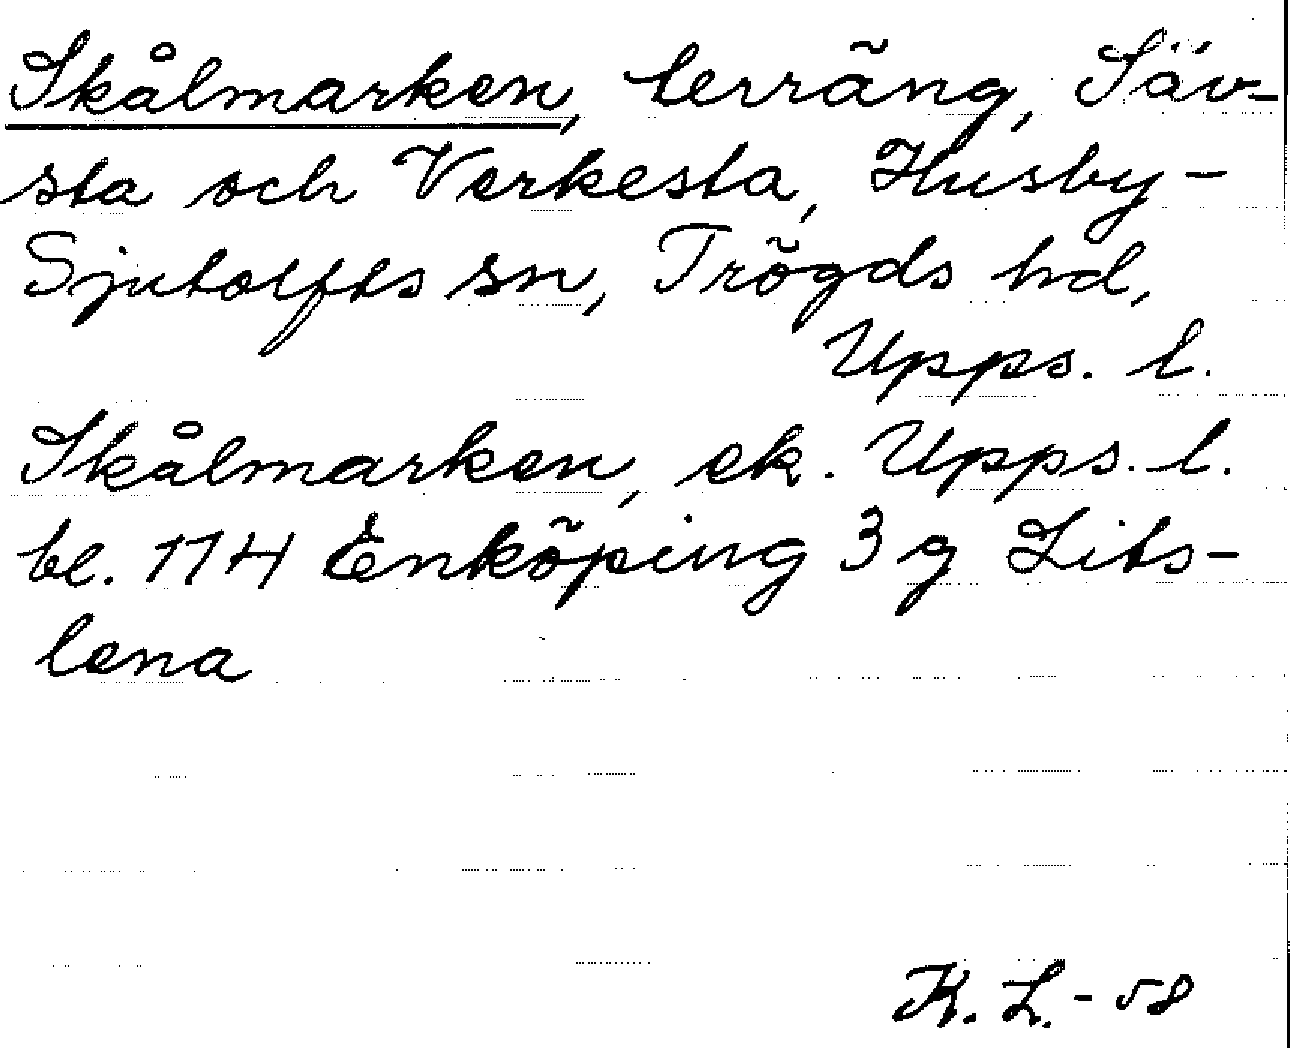 Skålmarken, terräng, Säv-
sta och Verkesta, Husby-
Sjutolfts sn, Trögds hd,
Upps. l.
Skålmarken, ek. Upps. l.
bl. 114 Enköping 3 g Lits-
lena
K. L. - 58